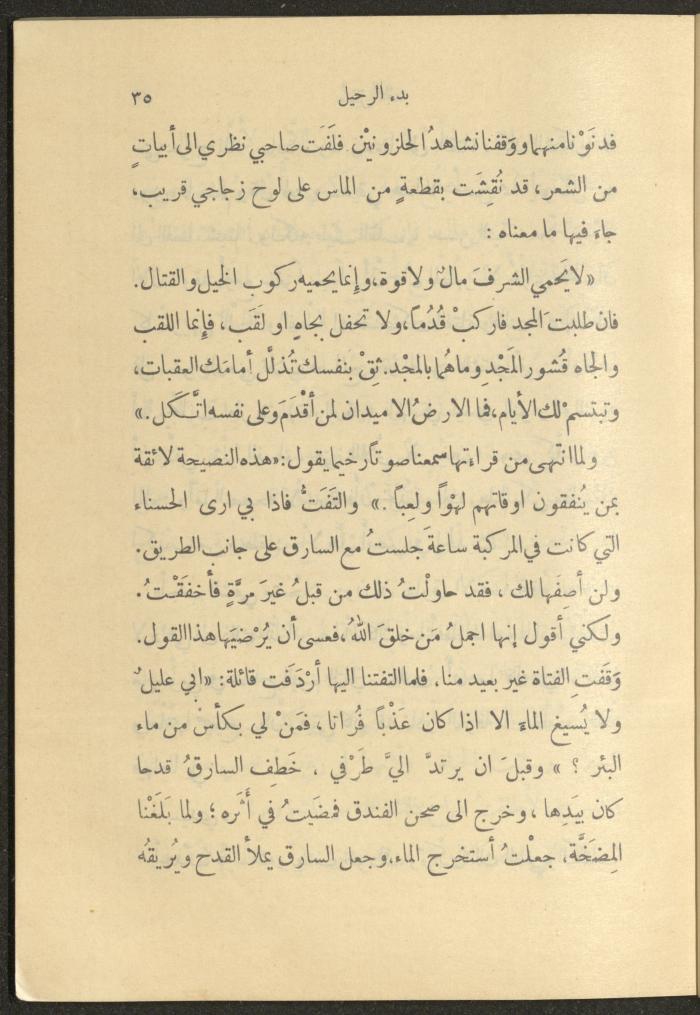 بدء الرحيل ٣٥
فدنَوْنا منهما ووَقفنا نشاهدُ الحلزونيْن فلَفَت صاحبي نظري الى أبياتٍ
من الشعر، قد نُقِشَت بقطعةٍ من الماس على لوح زجاجي قريب،
جاءَ فيها ما معناه :
«لا يَحمي الشرفَ مالٌ ولا قوة، وإِنما يحميه ركوب الخيل والقتال.
فان طلبتَ المجد فاركبْ قُدُماً، ولا تحفل بجاهٍ او لقَب، فإِنما اللقب
والجاه قُشور المَجْدِ وما هُما بالمجْد. ثِقْ بنفسك تُذلَّل أمامَك العقبات،
وتبتسمْ لك الأيام، فما الارضُ الا ميدان لمن أقْدَمَ وعلى نفسه اتَّكل.»
ولما انتهى من قراءتها سمعنا صوتاً رخيما يقول: «هذه النصيحة لائقة
بمن يُنفقون اوقاتهم لهْواً ولعِباً .» والتَفَتُّ فاذا بي ارى الحسناء
التي كانت في المركبة ساعةَ جلستُ مع السارق على جانب الطريق.
ولن أصِفَها لك ، فقد حاولْتُ ذلك من قبلُ غيرَ مرَّةٍ فأخفَقْتُ.
ولكني أقول إنها اجملُ مَن خلقَ اللهُ، فعسى أن يُرْضيَها هذا القول.
وَقفَتِ الفتاة غير بعيد منا، فلما التفتنا اليها أرْدَفَت قائلة: «ابي عليلٌ
ولا يُسيغ الماءَ الا اذا كان عَذْباً فُراتا ، فمَنْ لي بكأس من ماء
البئر ؟ » وقبلَ ان يرتدَّ اليَّ طَرْفي ، خَطِف السارقُ قدحا
كان بيَدِها ، وخرج الى صحن الفندق فمضَيتُ في أثَره ؛ ولما بَلَغْنا
المِضَخَّة، جعلْتُ أستخرج الماء، وجعل السارق يملأ القدح ويُريقهُ